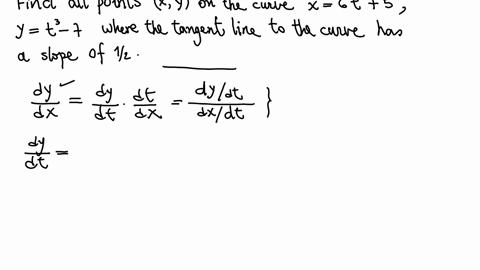 Find all points (x, y) on the curve x = 6t + 5,
y = t³ - 7 where the tangent line to the curve has
a slope of 1/2.
dy/dx = dy/dt · dt/dx = (dy/dt)/(dx/dt) }
dy/dt =